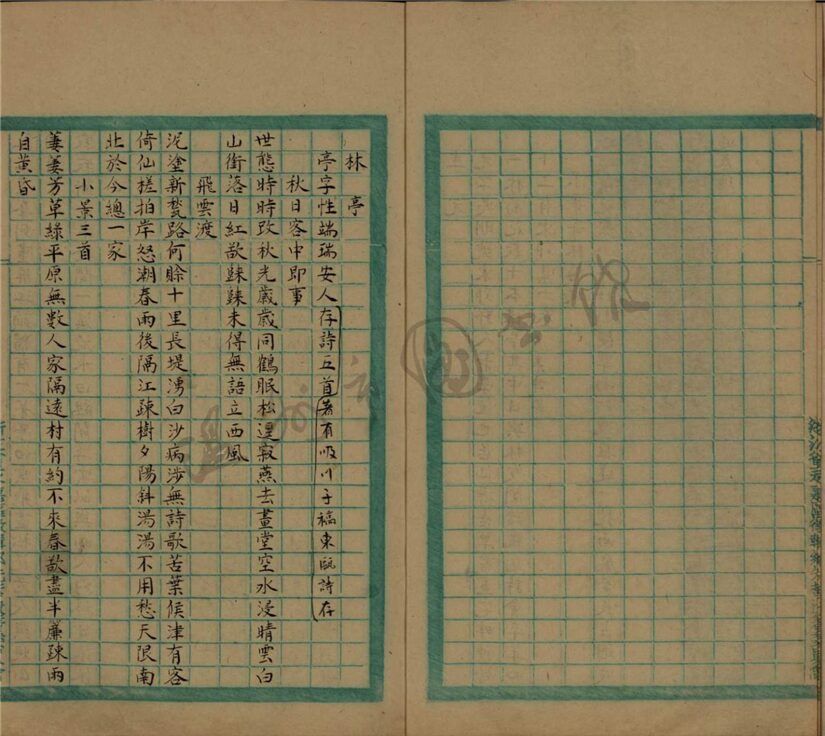 林亭
亭字性端瑞安人存詩五首著有吸川子稿東甌詩存
秋日客中即事
世態時時改秋光歲歲同鶴眠松逕寂燕去畫堂空水浸晴雲白
山銜落日紅欲歸歸未得無語立西風
飛雲渡
泥塗新甃路何賒十里長堤湧白沙病涉無詩歌苦葉候津有客
倚仙槎拍岸怒潮春雨後隔江疎樹夕陽斜湯湯不用愁天限南
北於今總一家
小景三首
萋萋芳草綠平原無數人家隔遠村有約不來春欲盡半簾疎雨
自黃昏
溫州市圖書館